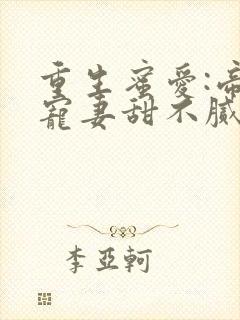 重生蜜愛:帝
寵妻甜不膩
李亞軻